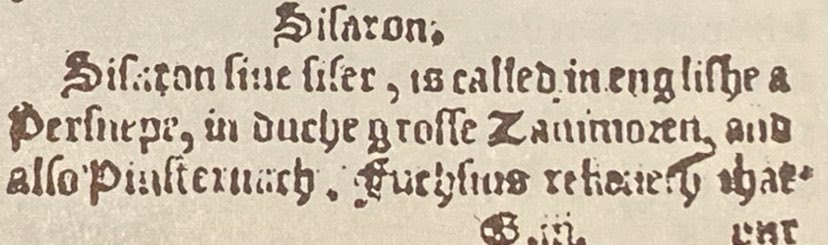 Sisaron.
Sisaron siue siser, is called in englishe a
Persnepe, in duche grosse Zammoren, and
also Pinsternach. Fuchsius rekeneth that
G.iii. our